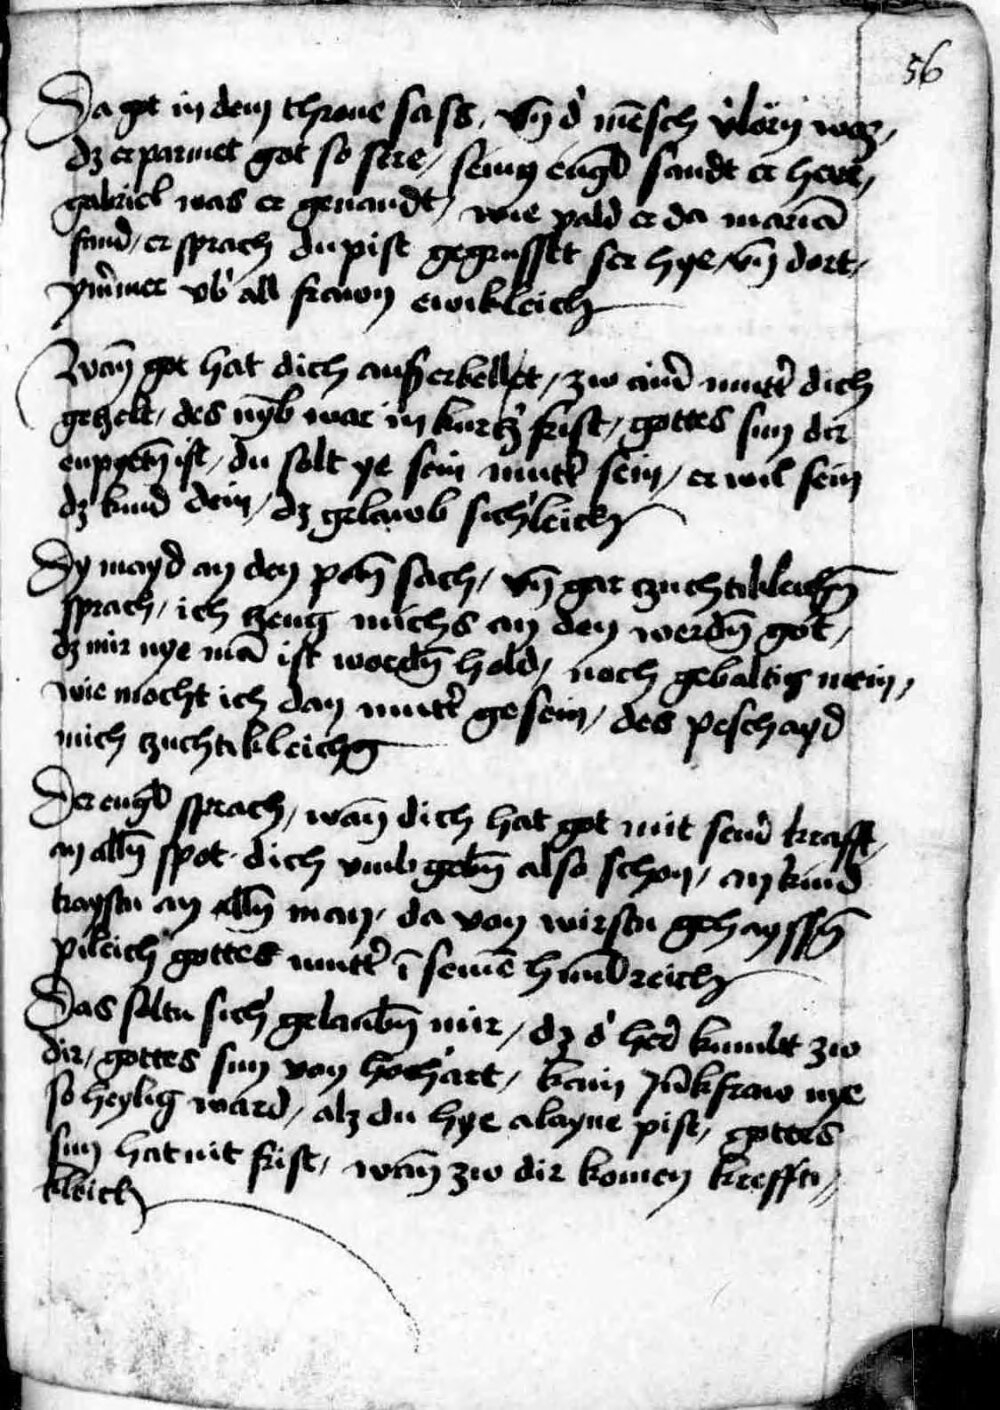 56
Da got in dem throne sass, vn̄ d' mēsch v'lorn waz,
dz erparmet got so sere, seiny engl̄ sandt er here,
gabriel was er genandt, wie pald er da mariā
fand, er sprach du pist gegrusset ser hye, vn̄ dort,
ym̄mer vb' all frawn ewikleich
Wān got hat dich ausserbellet, zw ain' mutt' dich
getzelt, des nym̄ war in kurtz' frist, gottes sun dir
enpotn̄ ist, du solt ye sein mutt' sein, er wil sein
dz kind dein, dz gelawb sich'leich
Dy mayd an den potn̄ sach, vn̄ gar tzuchtikleichn̄
sprach, ich tzeug michs an den werdn̄ got,
dz mir nye mā ist wordn̄ hold, noch gebaltig mein,
wie mocht ich dan mutt' gesein, des peschayd
mich tzuchtikleich
Der engl̄ sprach, wān dich hat got mit sein' krafft,
an alln̄ spot dich vmbgebn̄ also schon, ayn kind
traystu an alln̄ man, da von wirstu gehayssn̄
pileich gottes mutt' ī seinē himl̄reich
Das soltu sich' gelaubn̄ mir, dz d' her' kumbt zw
dir, gottes sun von hoch'art, kain Jūkfraw nye
so heylig ward, alz du hye alayne pist, gottes
sun hat nit frist, wān zw dir komen kreffti//
kleich